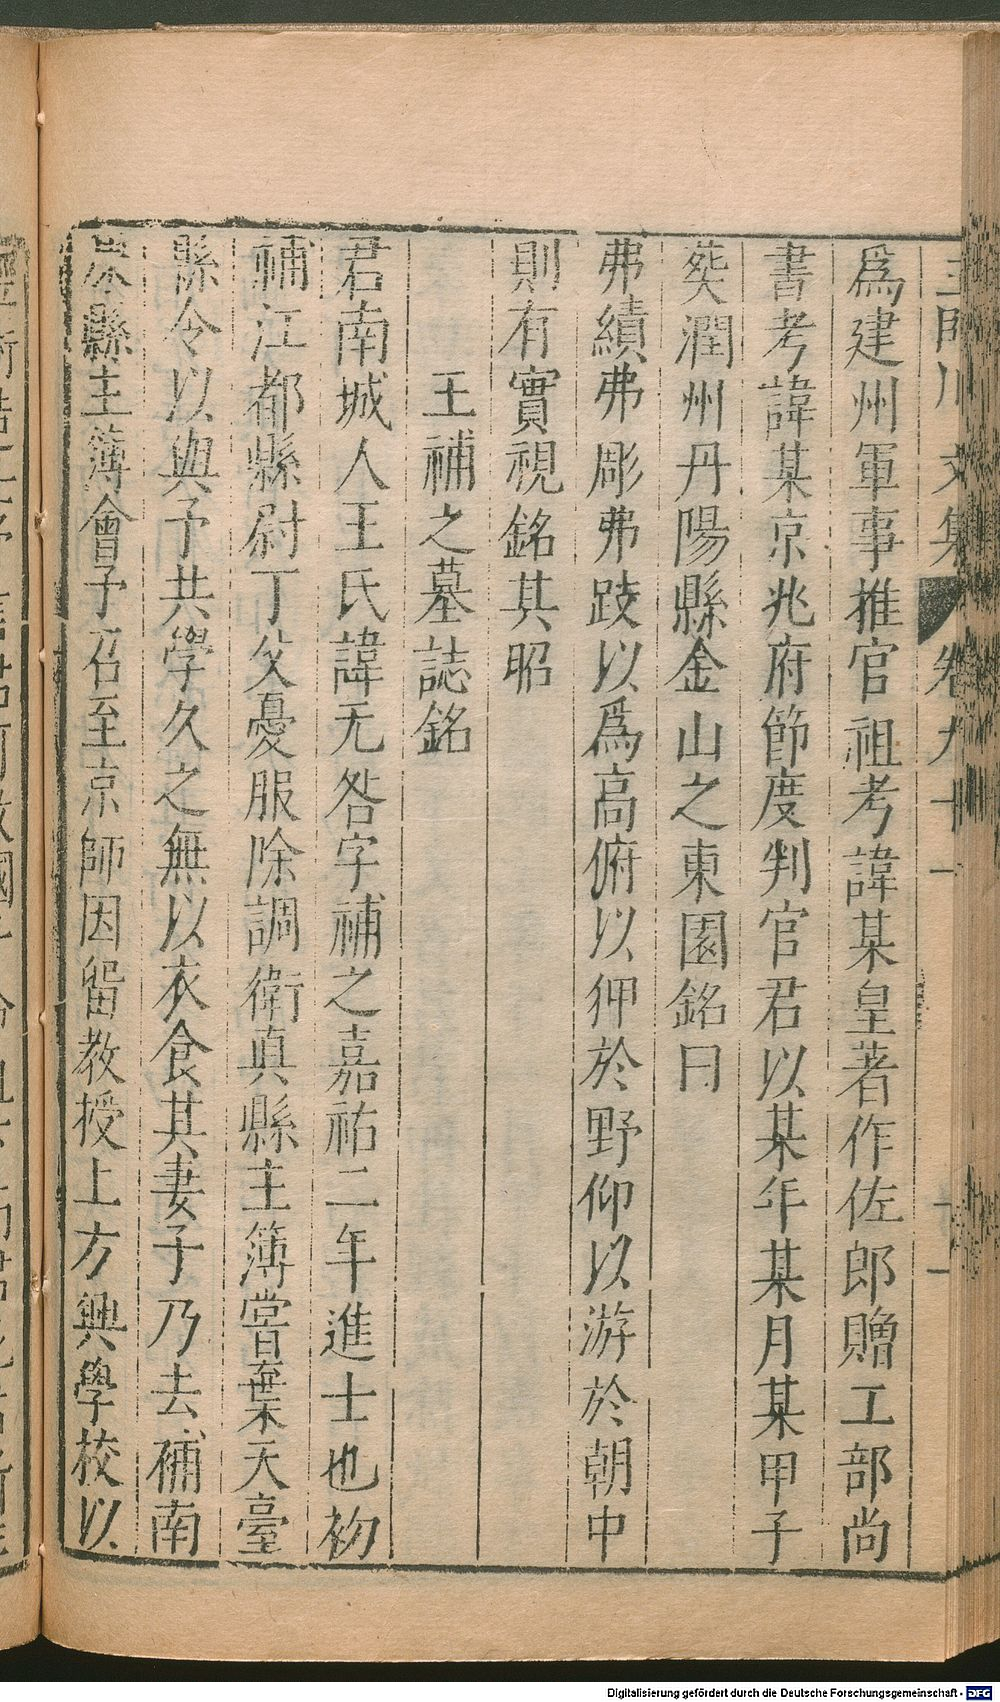 爲建州軍事推官祖考諱某皇著作佐郎贈工部尚
書考諱某京兆府節度判官君以某年某月某甲子
葬潤州丹陽縣金山之東園銘曰
弗績弗彫弗跂以爲高俯以狎於野仰以游於朝中
則有實視銘其昭
王補之墓誌銘
君南城人王氏諱无咎字補之嘉祐二年進士也初
補江都縣尉丁父憂服除調衛真縣主簿嘗葉天臺
縣令以與予共學久之無以衣食其妻子乃去補南
康縣主簿會予召至京師因留教授上方興學校以
文集 卷九十一
Digitalisierung gefördert durch die Deutsche Forschungsgemeinschaft - DFG